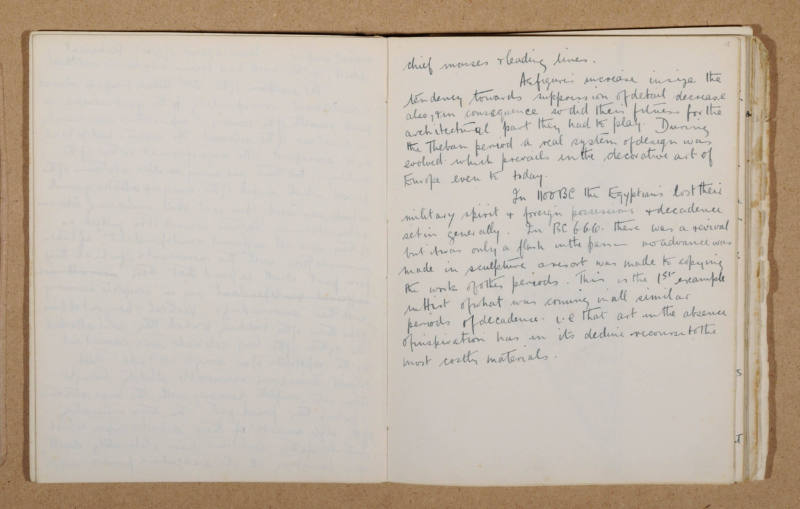 chief masses & leading lines.
As figures increase in size the
tendency towards suppression of detail decrease
also, & in consequence so did their fitness for the
architectural part they had to play. During
the Theban period a real system of design was
evolved which prevails in the decorative art of
Europe even to today.
In 1100 BC the Egyptians lost their
military spirit & foreign possessions & decadence
set in generally. In BC 666 there was a revival
but it was only a flash in the pan — no advance was
made in sculpture a resort was made to copying
the work of other periods. This is the 1st example
in Hist of what was coming in all similar
periods of decadence. i.e that art in the absence
of inspiration has in its decline recourse to the
most costly materials.